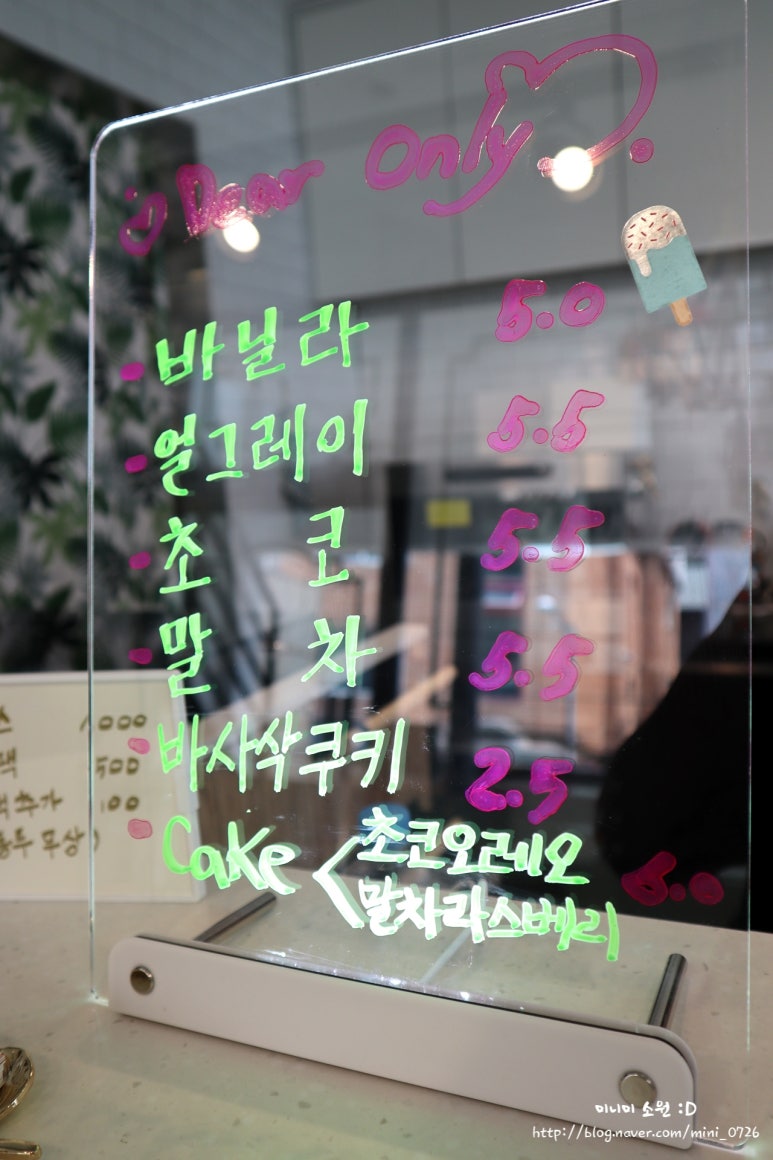 Dear Only
바닐라 5.0
얼그레이 5.5
초코 5.5
말차 5.5
바사삭쿠키 2.5
Cake < 초코오레오 6.0
말차라즈베리
1000
500
추가 100
무상)
미니미 소원 :D
http://blog.naver.com/mini_0726